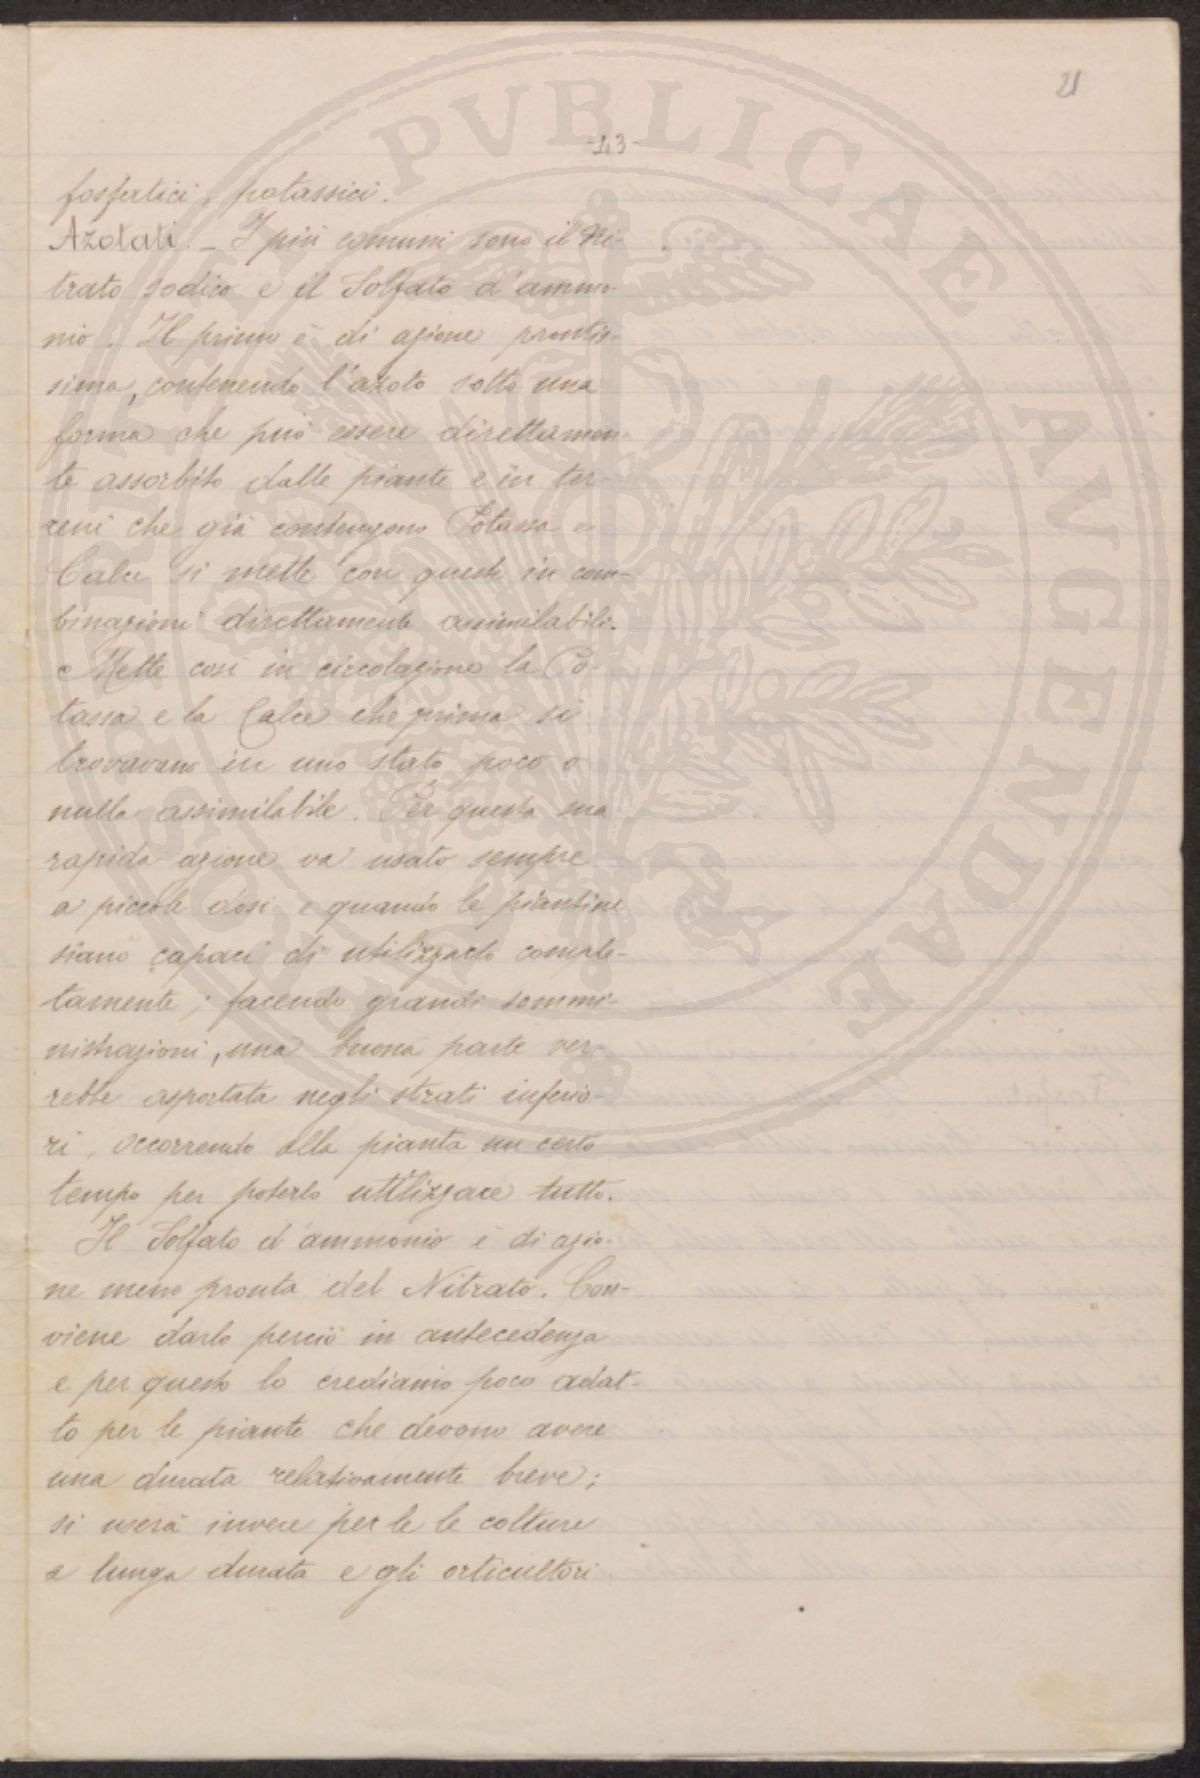 21
-43-
fosfatici, potassici.
Azotati. _ I più comuni sono il Ni-
trato sodico e il Solfato d'ammo-
nio. Il primo è di azione prontis-
sima, contenendo l'azoto sotto una
forma che può essere direttamen-
te assorbito dalle piante e in ter-
reni che già contengono Potassa e
Calce si mette con queste in com-
binazioni direttamente assimilabili.
Mette così in circolazione la Po-
tassa e la Calce che prima si
trovavano in uno stato poco o
nulla assimilabile. Per questa sua
rapida azione va usato sempre
a piccole dosi e quando le piantine
siano capaci di utilizzarlo comple-
tamente; facendo grandi sommi-
nistrazioni, una buona parte ver-
rebbe asportata negli strati inferio-
ri, occorrendo alla pianta un certo
tempo per poterlo utilizzare tutto.
Il Solfato d'ammonio è di azio-
ne meno pronta del Nitrato. Con-
viene darlo perciò in antecedenza
e per questo lo crediamo poco adat-
to per le piante che devono avere
una durata relativamente breve;
si userà invece per le le colture
a lunga durata e gli orticultori
PUBLICAE AUGENDAE